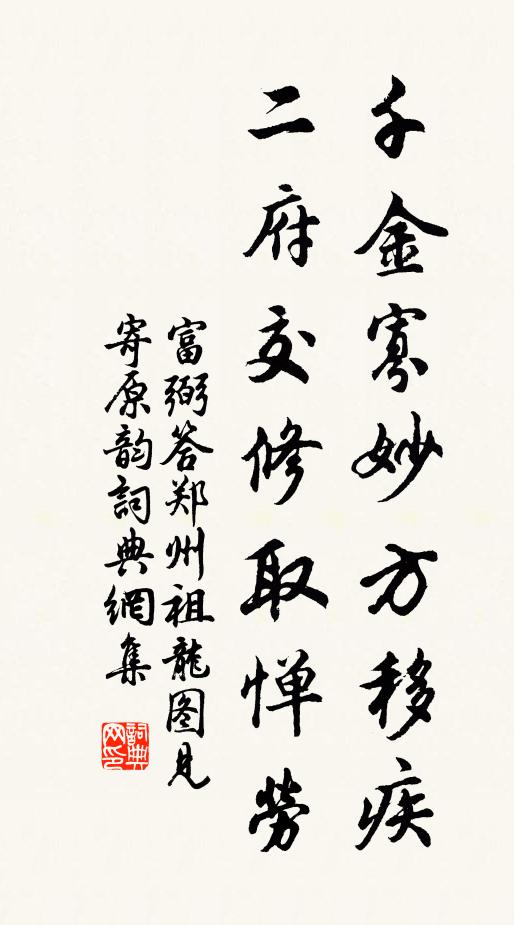 千金寡妙方移疾
二府交修取惮勞
富弼答郑州祖龍图見
寄原韵詞典網集
詞典网印